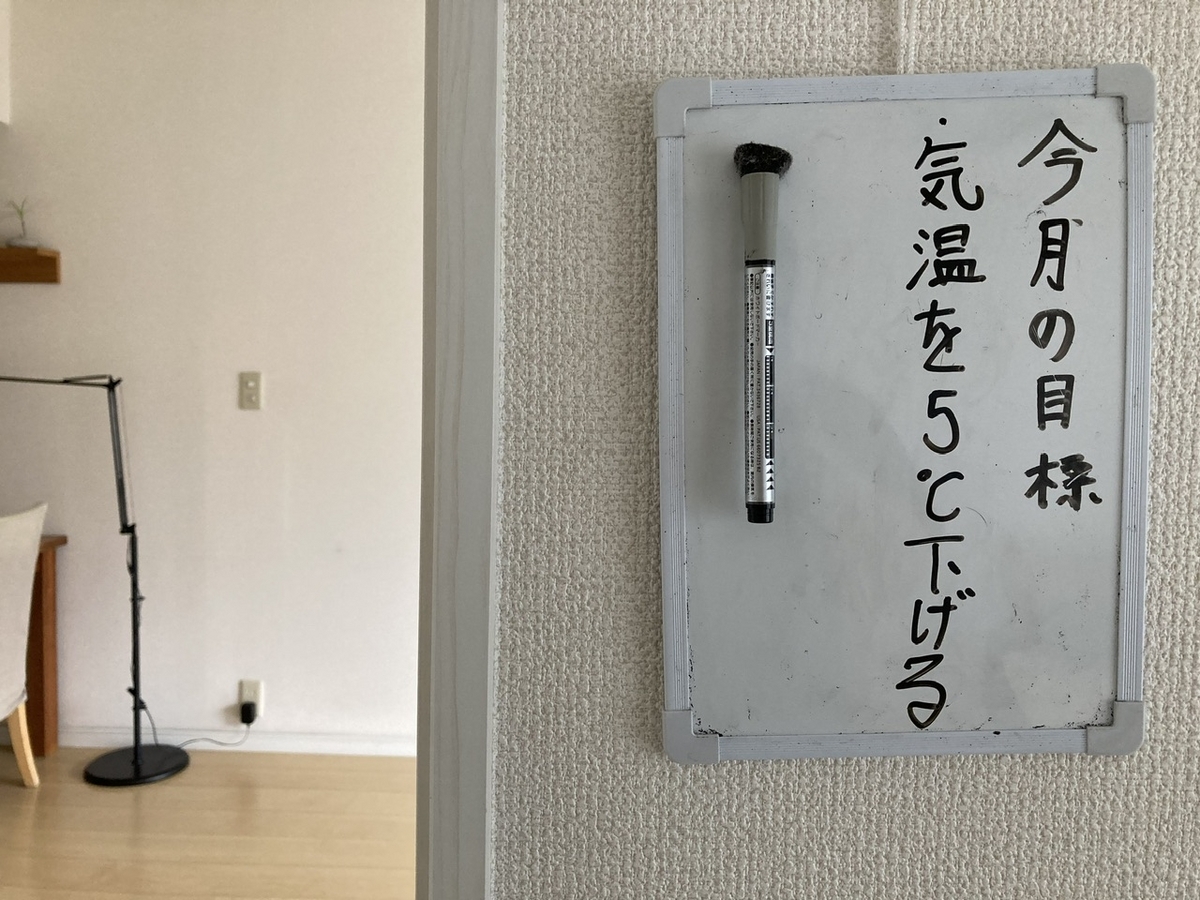 今月の目標
・気温を5℃下げる